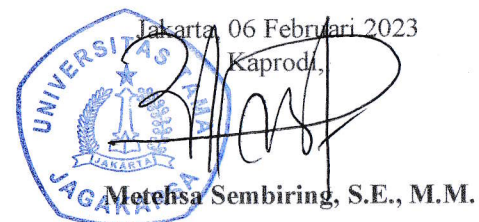 Jakarta, 06 Februari 2023
Kaprodi,
UNIVERSITAS TAMA
JAGAKARSA
JAKARTA
Metehsa Sembiring, S.E., M.M.